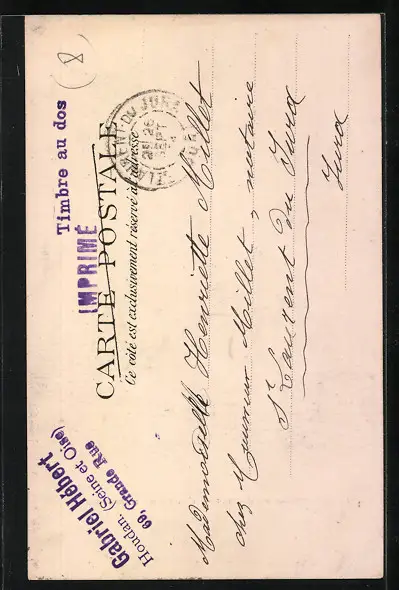 (8)
Timbre au dos
IMPRIMÉ
CARTE POSTALE
Ce côté est exclusivement réservé à l'adresse
Gabriel Hébert
Houdan (Seine et Oise)
69, Grande Rue
ST LAURENT-DU-JURA
26
SEPT
Mademoiselle Henriette Millet
chez Monsieur Millet, notaire
St Laurent du Jura
Jura